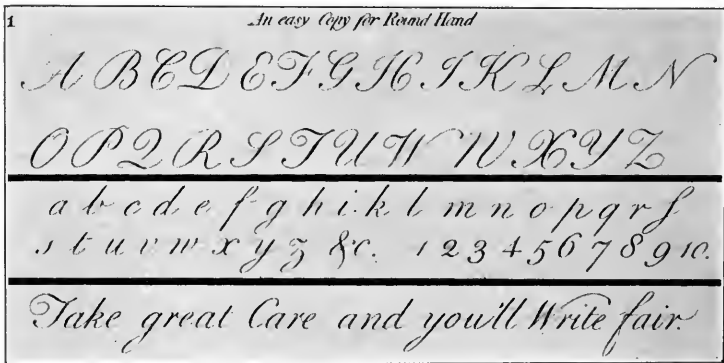 1
An easy Copy for Round Hand
A B C D E F G H I K L M N
O P Q R S T U V W X Y Z
a b c d e f g h i k l m n o p q r ſ
s t u v w x y z &c. 1 2 3 4 5 6 7 8 9 10.
Take great Care and you'll Write fair.